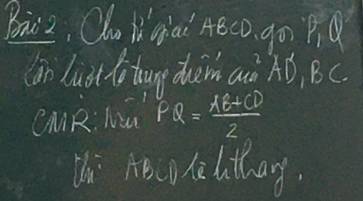 Bài 2. Cho tứ giác ABCD, gọi P, Q
lần lượt là trung điểm của AD, BC.
CMR: Nếu PQ = \frac{AB+CD}{2}
thì ABCD là hthang.